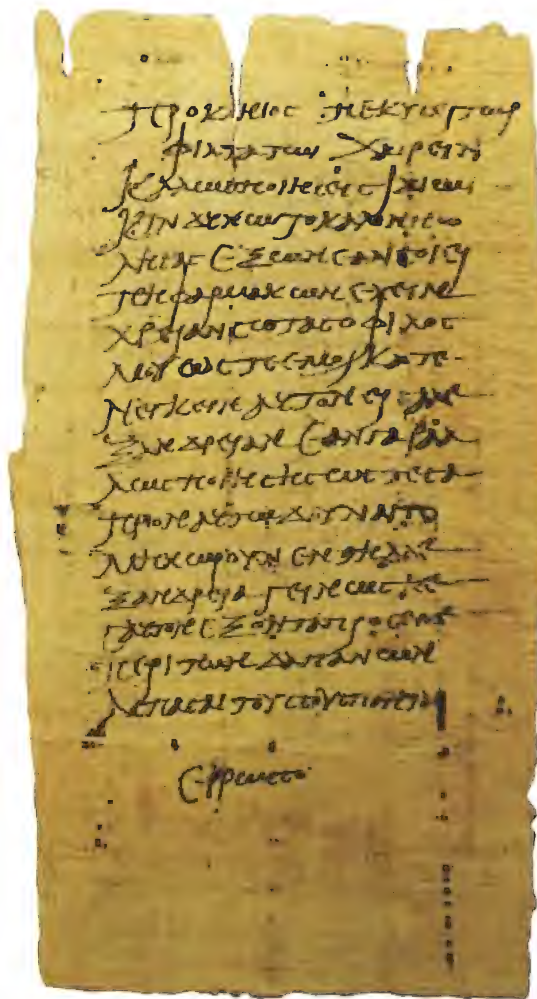 Προκλήιος Πεκύσει τῶι
φιλτάτωι χαίρειν
καλῶς ποιήσεις ἰδίωι
κινδύνω τὸ καλὸν πω
λήσας ἐξ ὧν ἐάν σοι εἴ
πη φαρμάκων ἔχειν
χρείαν Σώτας ὁ φίλος
μου ὥστε ἐμοὶ κατε
νεγκεῖν αὐτὸν εἰς Ἀλε
ξάνδρειαν ἐὰν γὰρ ἄλ
λως ποιήσης ὥστε σα
πρὸν αὐτῶ δοῦναι τὸ
μὴ χωροῦν ἐν τῆ Ἀλε
ξανδρεία γείνωσκε σ
αυτὸν ἕξοντα πρὸς ἐμὲ
περὶ τῶν δαπανῶν
ἄσπασαι τοὺς σοὺς πάντας
ἔρρωσο